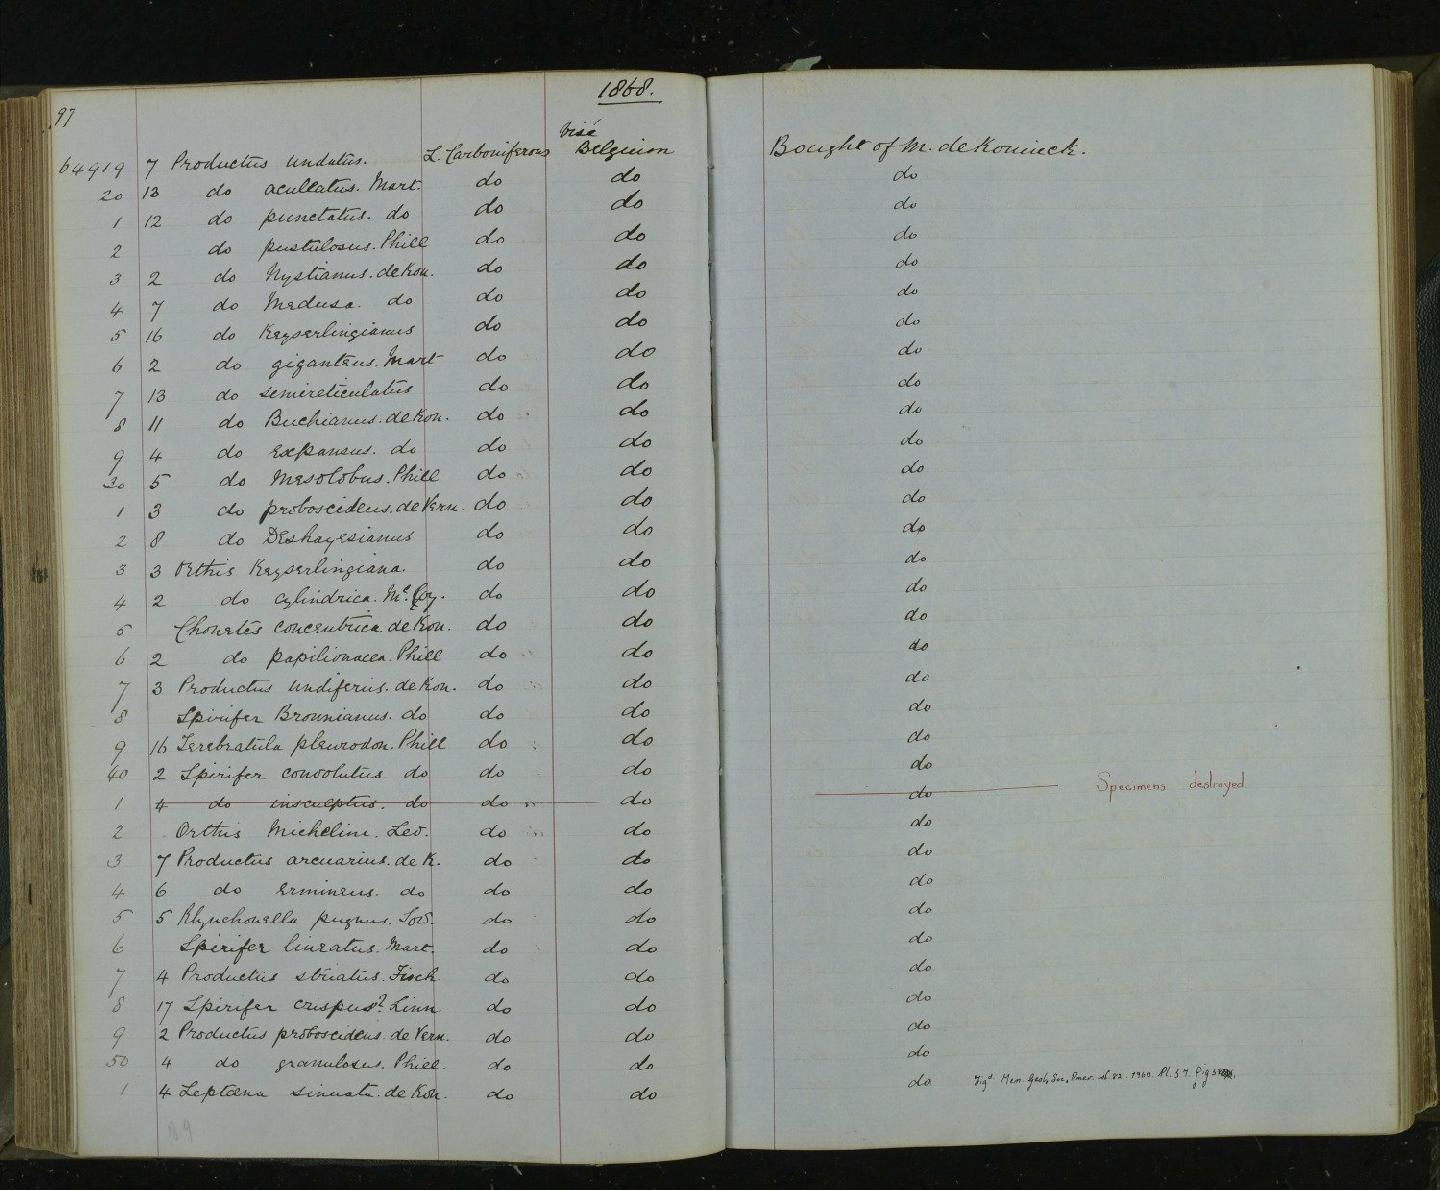 97
1868.
64919 7 Productus undatus. L. Carboniferous Visé Belgium Bought of M. de Koninck.
20 13 do aculeatus. Mart. do do do
1 12 do punctatus. do do do do
2 do pustulosus. Phill do do do
3 2 do Nystianus. de Kon. do do do
4 7 do Medusa. do do do do
5 16 do Keyserlingianus do do do
6 2 do giganteus. Mart do do do
7 13 do semireticulatus do do do
8 11 do Buchianus. de Kon. do do do
9 4 do Expansus. do do do do
30 5 do Mesolobus. Phill do do do
1 3 do proboscideus. de Vern. do do do
2 8 do Deshayesianus do do do
3 3 Orthis Keyserlingiana. do do do
4 2 do cylindrica. Mc. Coy. do do do
5 Chonetes concentrica de Kon. do do do
6 2 do papilionacea. Phill do do do
7 3 Productus undiferus. de Kon. do do do
8 Spirifer Bronnianus. do do do do
9 16 Terebratula pleurodon. Phill do do do
40 2 Spirifer convolutus do do do do
1 4 do insculptus. do do do do Specimens destroyed
2 Orthis Michelini. Lev. do do do
3 7 Productus arcuarius. de K. do do do
4 6 do Ermineus. do do do do
5 5 Rhynchonella pugnus. Sow. do do do
6 Spirifer lineatus. Mart. do do do
7 4 Productus striatus. Fisch do do do
8 17 Spirifer crispus? Linn do do do
9 2 Productus proboscideus. de Vern. do do do
50 4 do granulosus. Phill. do do do
1 4 Leptæna sinuata. de Kon. do do do Figd. Mem. Geol. Soc. Amer. 82. 1960. Pl. 57. fig